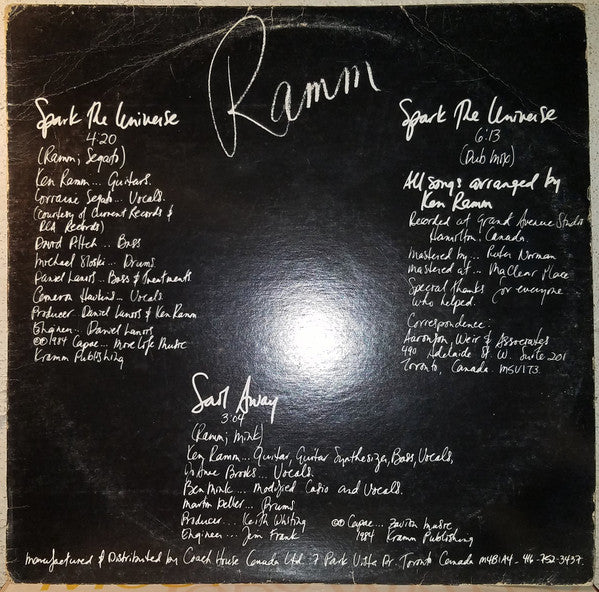 Ramm
Spark The Universe
4:20
(Ramm; Segato)
Ken Ramm... Guitars.
Lorraine Segato... Vocals.
(courtesy of Current Records &
RCA Records)
David Piltch... Bass
Michael Sloski... Drums.
Daniel Lanois... Bass & Treatments
Cameron Hawkins... Vocals.
Producer Daniel Lanois & Ken Ramm
Engineer... Daniel Lanois
©℗1984 Capac... More Life Music
Kramm Publishing
Spark The Universe
6:13
(Dub Mix)
All songs arranged by
Ken Ramm
Recorded at Grand Avenue Studio
Hamilton, Canada.
Mastered by... Peter Norman
Mastered at... MacLear Place
Special thanks for everyone
who helped.
Correspondence:
Aaronson, Weir & Associates
490 Adelaide St W. Suite 201
Toronto, Canada. M5V1T3.
Sail Away
3:04
(Ramm; Mink)
Ken Ramm... Guitar, Guitar Synthesizer, Bass, Vocals,
Jo Anne Brooks... Vocals.
Ben Mink... Modified Casio and Vocals.
Martin Deller... Drums
Producer... Keith Whiting
Engineer... Jim Frank
©℗ Capac... Zavion Music
1984 Kramm Publishing
Manufactured & Distributed by Coach House Canada Ltd. 7 Park Vista Dr. Toronto Canada M4B1A4 - 416-752-3437.